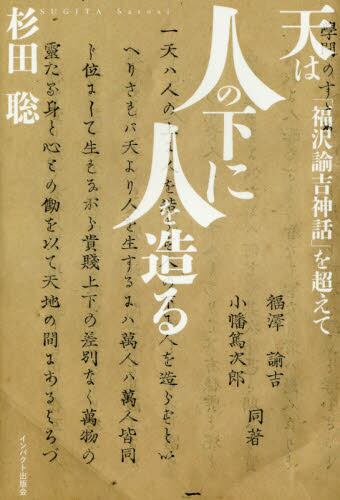 SUGITA Satosi
杉田 聡
天は
人の下に
人造る
「福沢諭吉神話」を超えて
學問のすゝめ
福澤 諭吉
小幡篤次郎 同著
一天ハ人の
人を造らずと以
へりされバ天より人を生ずるにハ萬人ハ萬人皆同
じ位にして生れながら貴賤上下の差別なく萬物の
靈たる身と心との働を以て天地の間にあるよろづ
一
インパクト出版会